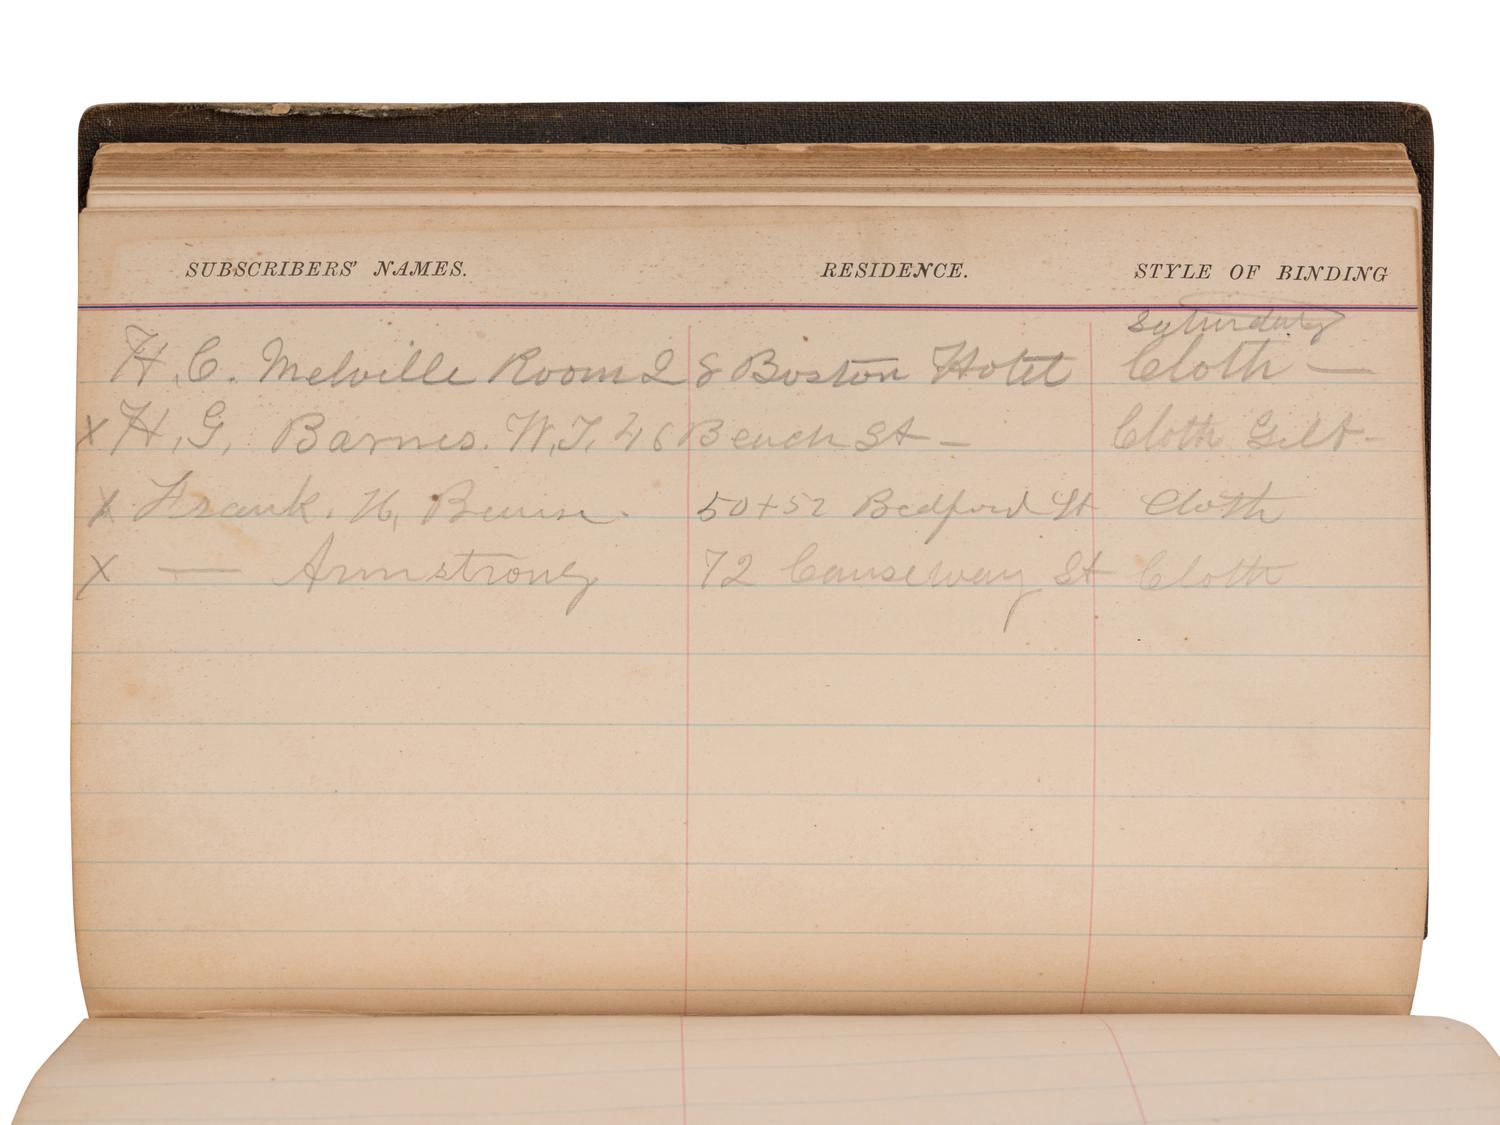 SUBSCRIBERS' NAMES. RESIDENCE. STYLE OF BINDING
Saturday
H. C. Melville Room 28 Boston Hotel Cloth —
x H. G. Barnes. W. T. 46 Beach St — Cloth Gilt -
x Frank. H. 50+52 Bedford St Cloth
x — Armstrong 72 Causeway St Cloth